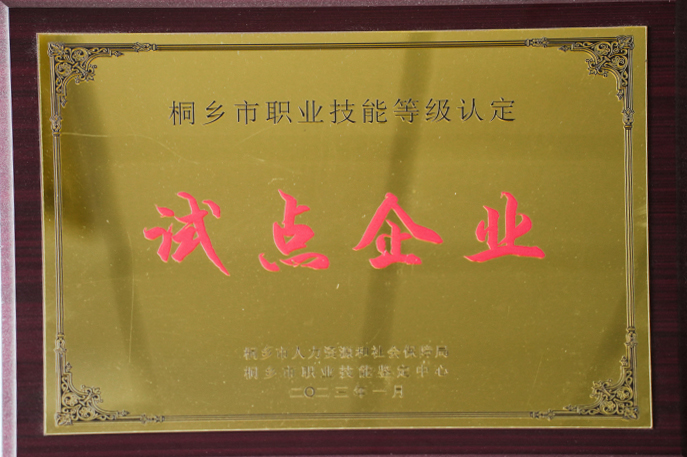 桐乡市职业技能等级认定
试点企业
桐乡市人力资源和社会保障局
桐乡市职业技能鉴定中心
二〇二三年一月